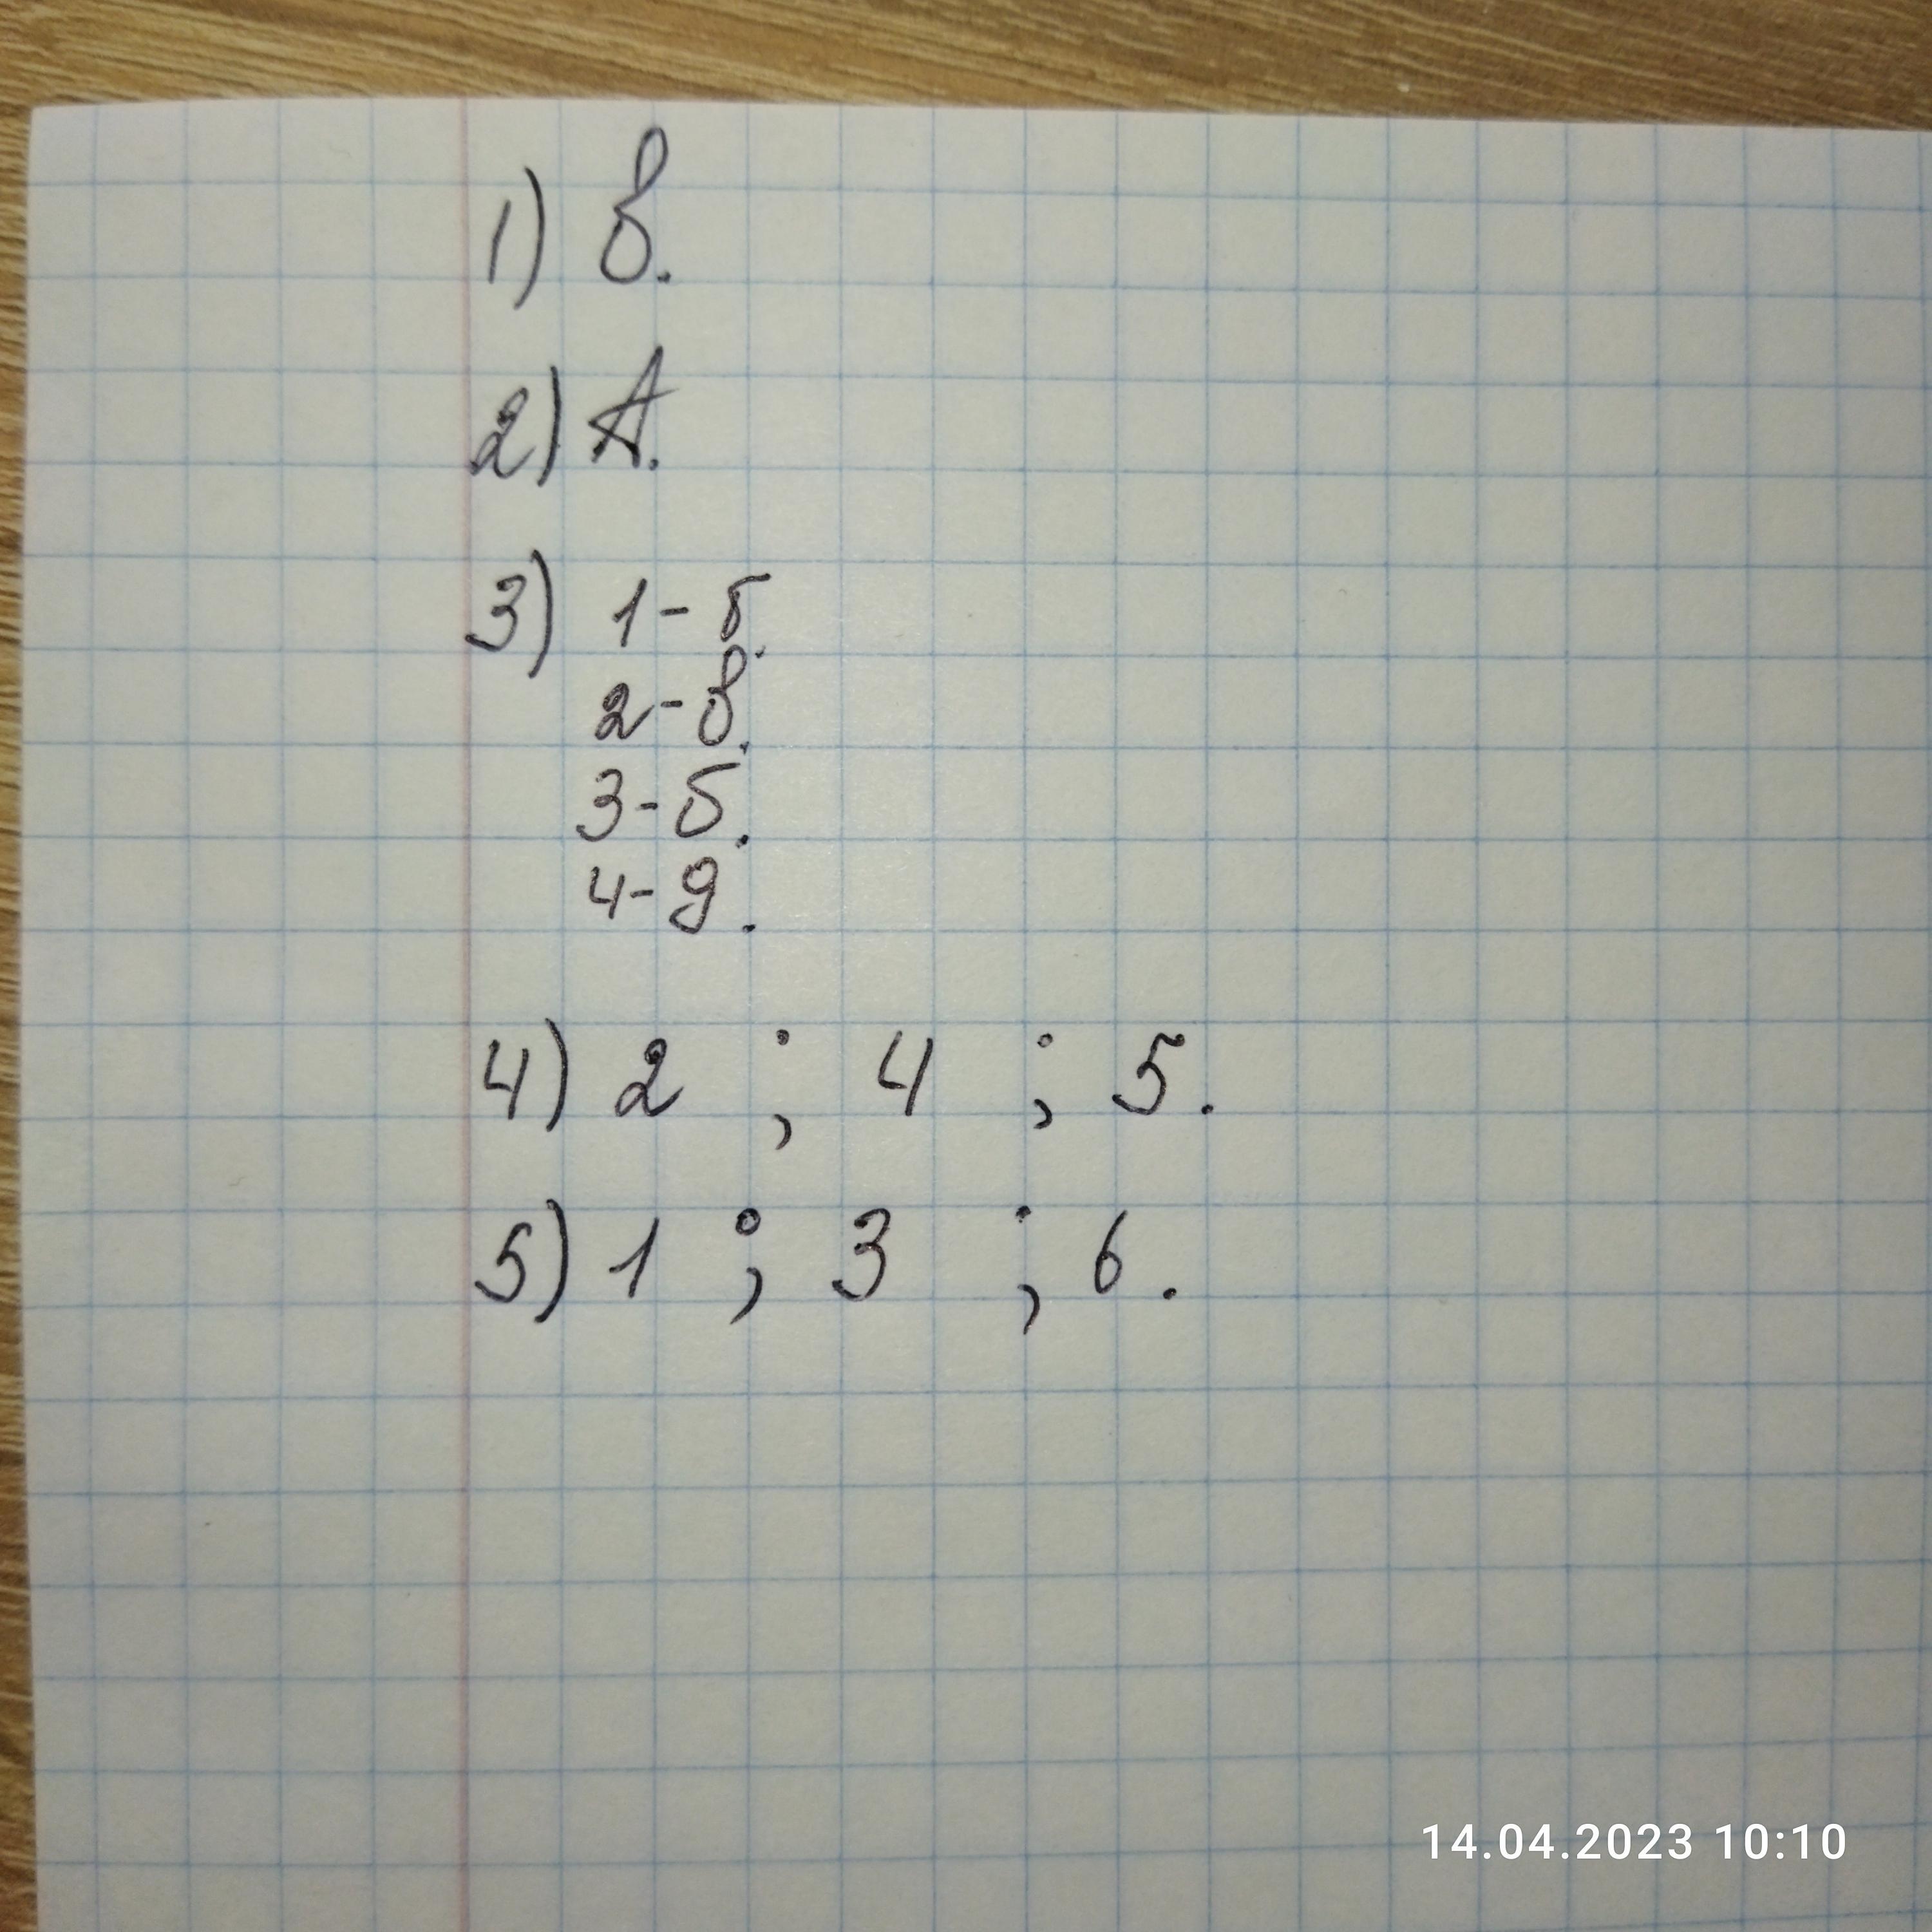 1) в.
2) А.
3) 1 - б.
2 - в.
3 - б.
4 - д.
4) 2 ; 4 ; 5.
5) 1 ; 3 ; 6.
14.04.2023 10:10